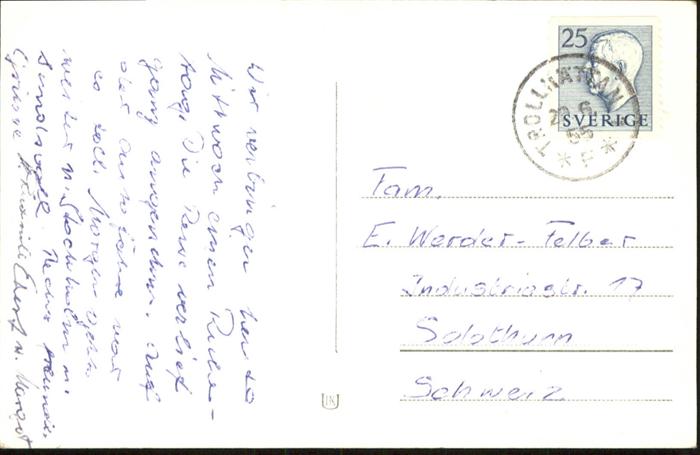 Wir verbringen heute
Mittwoch einen Ruhe-
tag. Die Reise verlief
ganz angenehm. Auf
der Autofähre war
es toll. Morgen gehts
weiter n. Stockholm u.
Sundsvall. Recht
Grüsse Ernst u. Margrit
25
SVERIGE
TROLLHÄTTAN
6.
55
* F *
Fam.
E. Werder-Felber
Industriestr. 17
Solothurn
Schweiz